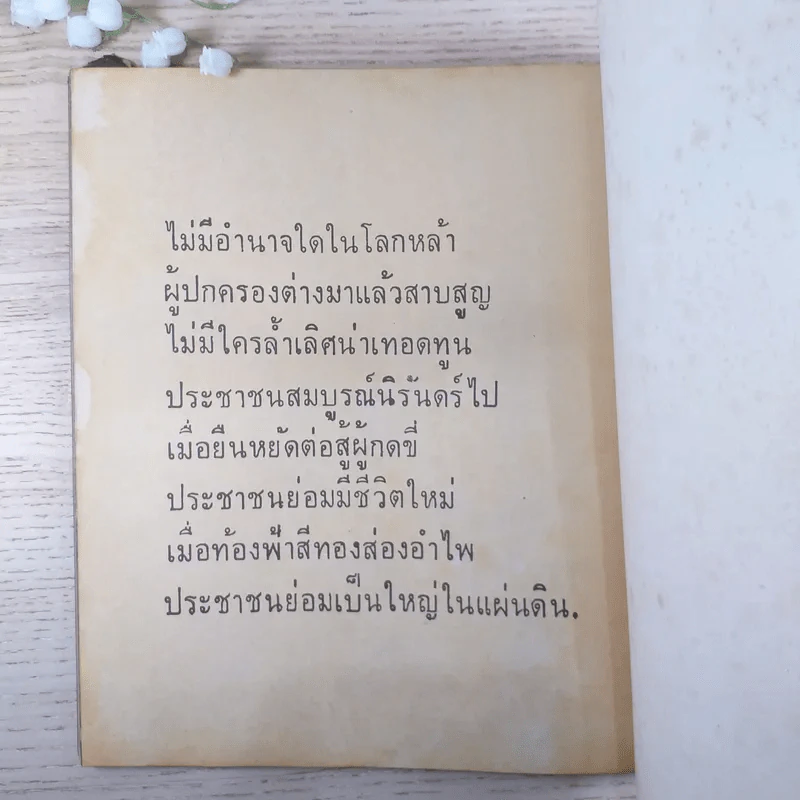 ไม่มีอำนาจใดในโลกหล้า
ผู้ปกครองต่างมาแล้วสาบสูญ
ไม่มีใครล้ำเลิศน่าเทอดทูน
ประชาชนสมบูรณ์นิรันดร์ไป
เมื่อยืนหยัดต่อสู้ผู้กดขี่
ประชาชนย่อมมีชีวิตใหม่
เมื่อท้องฟ้าสีทองส่องอำไพ
ประชาชนย่อมเป็นใหญ่ในแผ่นดิน.